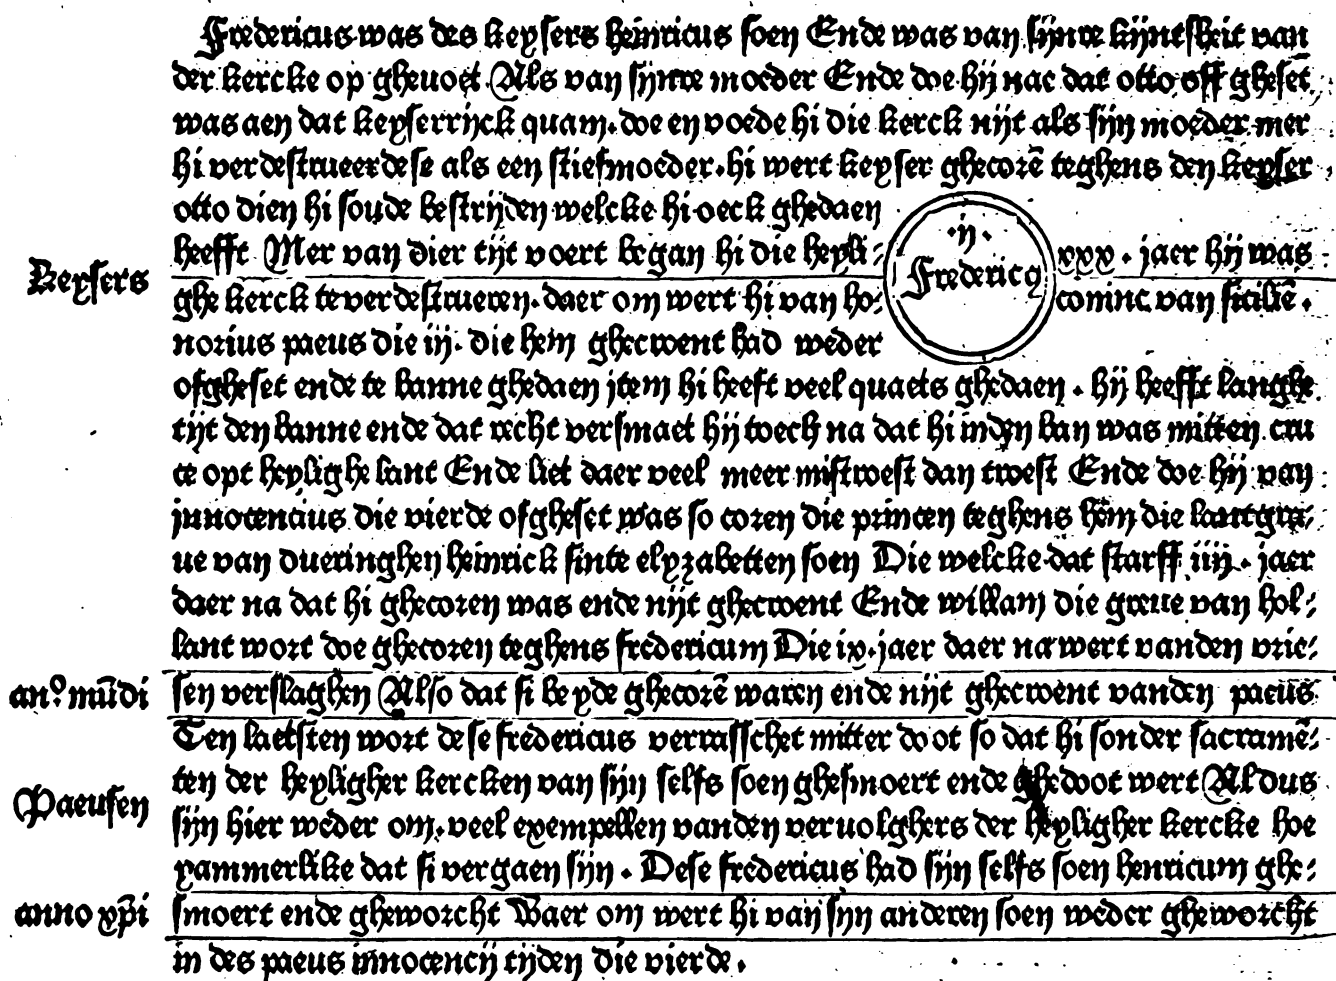 Fredericus was des keysers heinricus soen Ende was van sijnre kijntsheit van
der kercke op gheuoet Als van sijnre moeder Ende doe hij nae dat otto off gheset
was aen dat keyserrijck quam. doe en voede hi die kerck nijt als sijn moeder mer
hi verdestrueerde se als een stiefmoeder. hi wert keyser ghecorē teghens den keyser
otto dien hi soude bestrijden welcke hi oeck ghedaen
heefft Mer van dier tijt voert began hi die heyli-
Keysers
ghe kerck te verdestrueren. daer om wert hi van ho-
norius paeus die iij. die hem ghecroent had weder
.ij.
Fredericꝰ
xxx. jaer hij was
coninc van sicilië.
ofgheset ende te banne ghedaen jtem hi heeft veel quaets ghedaen. hij heefft langhe
tijt den banne ende dat recht versmaet hij toech na dat hi in den ban was mitten cru
ce opt heylighe lant Ende liet daer veel meer mistroest dan troest Ende doe hij van
jnnocencius die vierde ofgheset was so coren die princen teghens hem die lantgra-
ue van dueringhen heinrick sinte elyzabetten soen Die welcke dat starff iiij. jaer
daer na dat hi ghecoren was ende nijt ghecroent Ende willam die greue van hol-
lant wort doe ghecoren teghens fredericum Die ix. jaer daer na wert vanden vrie-
an.º mūdi
sen verslaghen Also dat si beyde ghecorē waren ende nijt ghecroent vanden paeus
Ten laetsten wort dese fredericus verrasschet mitter doot so dat hi sonder sacramē-
ten der heyligher kercken van sijn selfs soen ghesmoert ende ghedoot wert Aldus
Paeusen
sijn hier weder om. veel exempellen vanden veruolghers der heyligher kercke hoe
yammerlike dat si vergaen sijn. Dese fredericus had sijn selfs soen henricum ghe-
anno xp̄i
smoert ende gheworcht Waer om wert hi van sijn anderen soen weder gheworcht
in des paeus innocencij tijden die vierde.